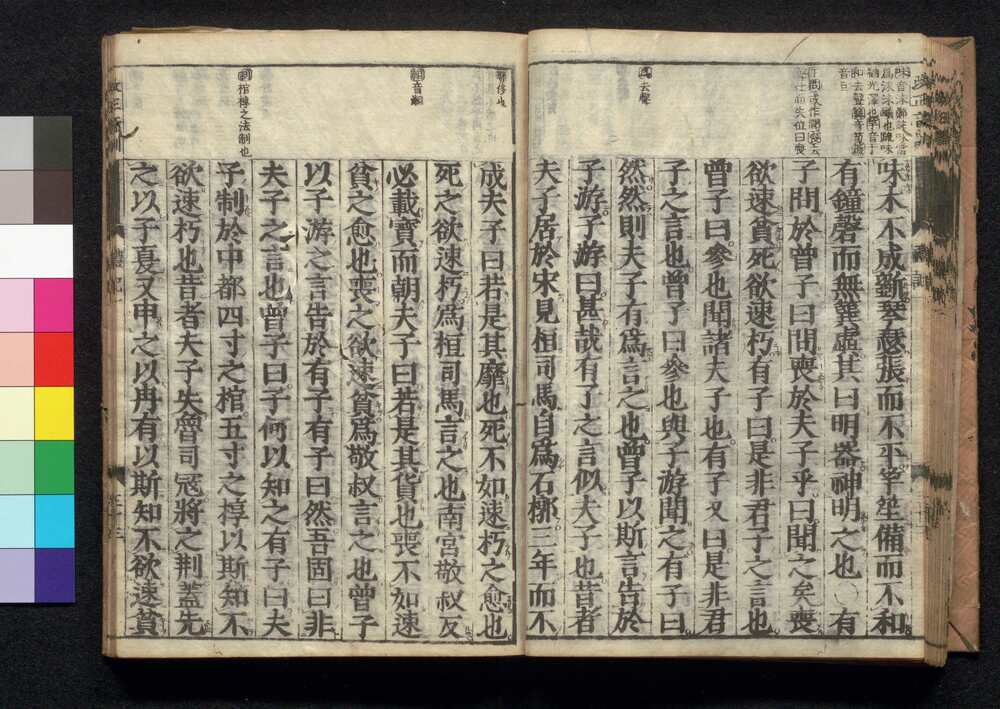 味木不成斲琴瑟張而不平竽笙備而不和
有鐘磬而無簨虡其曰明器神明之也〇有
子問於曾子曰問喪於夫子乎曰聞之矣喪
欲速貧死欲速朽有子曰是非君子之言也
曾子曰參也聞諸夫子也有子又曰是非君
子之言也曾子曰參也與子游聞之有子曰
然然則夫子有為言之也曾子以斯言告於
子游子游曰甚哉有子之言似夫子也昔者
夫子居於宋見桓司馬自為石槨三年而不
去聲
成夫子曰若是其靡也死不如速朽之愈也
死之欲速朽為桓司馬言之也南宮敬叔反
必載寶而朝夫子曰若是其貨也喪不如速
貧之愈也喪之欲速貧為敬叔言之也曾子
以子游之言告於有子有子曰然吾固曰非
夫子之言也曾子曰子何以知之有子曰夫
子制於中都四寸之棺五寸之椁以斯知不
欲速朽也昔者夫子失魯司寇將之荆蓋先
之以子夏又申之以冉有以斯知不欲速貧
音潮
棺椁之法制也
禮記